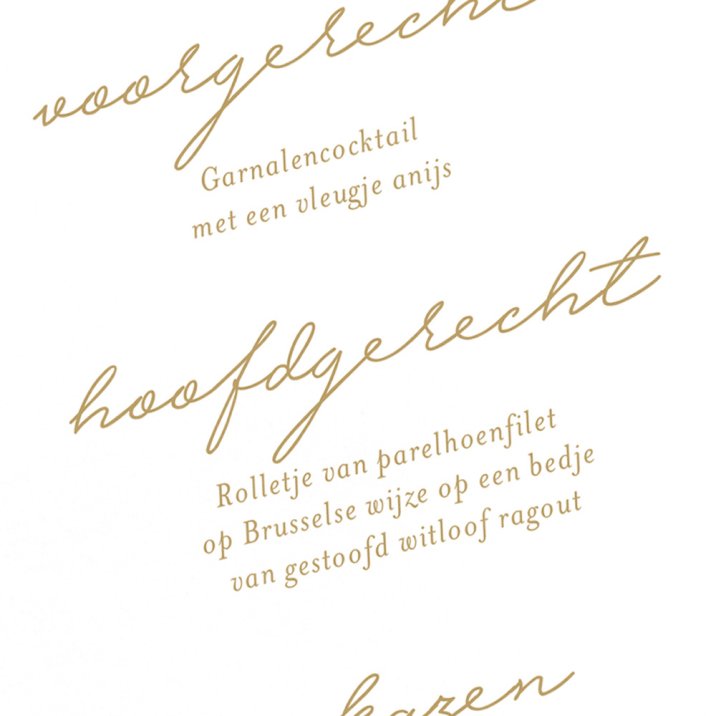 voorgerecht
Garnalencocktail
met een vleugje anijs
hoofdgerecht
Rolletje van parelhoenfilet
op Brusselse wijze op een bedje
van gestoofd witloof ragout
kazen